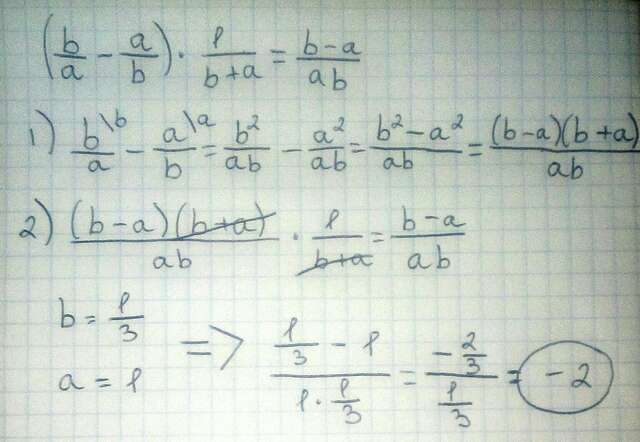 (b/a - a/b) · 1/(b+a) = (b-a)/(ab)
1) b\b/a - a\a/b = b²/(ab) - a²/(ab) = (b²-a²)/(ab) = (b-a)(b+a)/(ab)
2) (b-a)(b+a)/(ab) · 1/(b+a) = (b-a)/(ab)
b = 1/3
a = 1
=> (1/3 - 1)/(1·1/3) = (-2/3)/(1/3) = -2